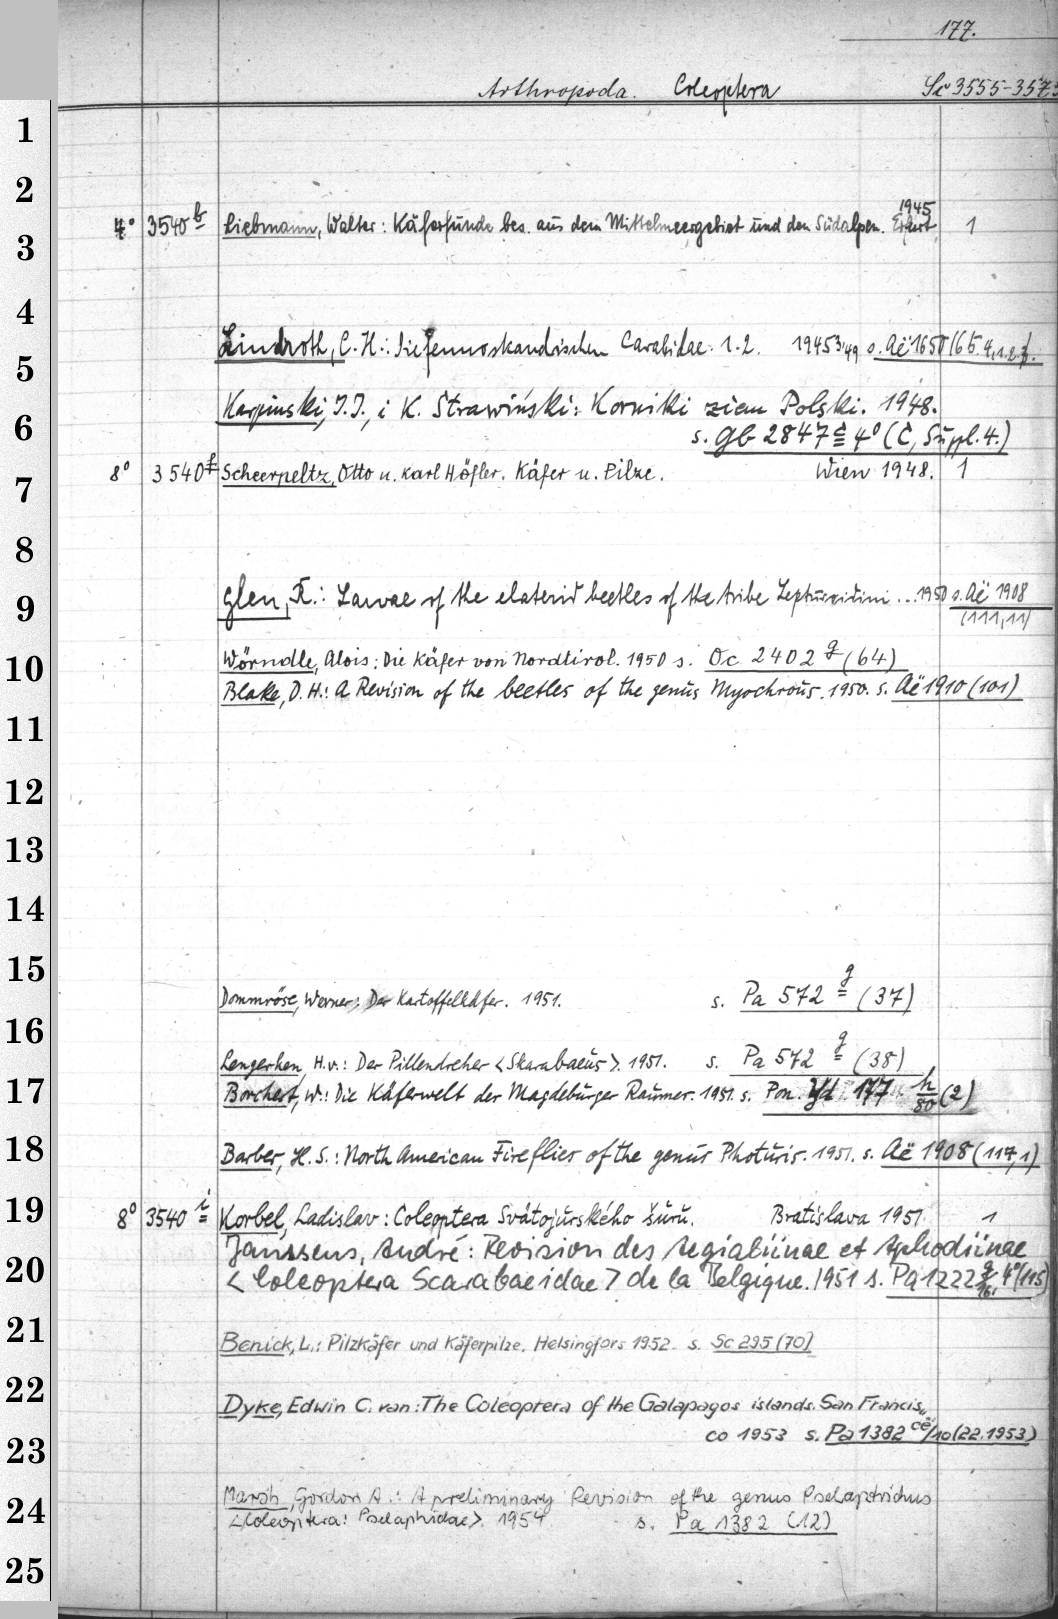 177.
Arthropoda. Coleoptera Sc 3555-3573
1
2
4° 3540 b Liebmann, Walter: Käferfunde bes. aus dem Mittelmeergebiet und den Südalpen. Erfurt 1945 1
3
4
Lindroth, C. H.: Die fennoskandischen Carabidae. 1-2. 1945, 49 s. Aë 1650
5
Karpinski, J. J., i K. Strawiński: Korniki ziem Polski. 1948.
6
s. Gb 2847 c 4° (C, Suppl. 4.)
8° 3540 f Scheerpeltz, Otto u. Karl Höfler. Käfer u. Pilze. Wien 1948. 1
7
8
Glen, R.: Larvae of the elaterid beetles of the tribe Lepturoidini ... 1950 s. Aë 1908
9
(111,11)
Wörndle, Alois: Die Käfer von Nordtirol. 1950 s. Oc 2402 g (64)
10
Blake, D. H.: A Revision of the beetles of the genus Myochrous. 1950. s. Aë 1910 (101)
11
12
13
14
15
Dommröse, Werner: Der Kartoffelkäfer. 1951. s. Pa 572 g (37)
16
Lengerken, H. v.: Der Pillendreher <Skarabaeus>. 1951. s. Pa 572 g (38)
17
Borchert, W.: Die Käferwelt der Magdeburger Raumes. 1951. s. Pon. Yd 177 h/80 (2)
18
Barber, H. S.: North American Fireflies of the genus Photuris. 1951. s. Aë 1908 (117,1)
19
8° 3540 i Korbel, Ladislav: Coleoptera Svätojurského šúru. Bratislava 1951. 1
Janssens, André: Revision des Aegialiinae et Aphodiinae
20
<Coleoptera Scarabaeidae> de la Belgique. 1951 s. Pa 1222 g/16. 4° (115)
21
Benick, L.: Pilzkäfer und Käferpilze. Helsingfors 1952. s. Sc 295 (70)
22
Dyke, Edwin C. van: The Coleoptera of the Galapagos islands. San Francis„
23
co 1953 s. Pa 1382 cë/10 (22.1953)
Marsh, Gordon A.: A preliminary Revision of the genus Pselaptrichus
24
<Coleoptera: Pselaphidae>. 1954 s. Pa 1382 (12)
25